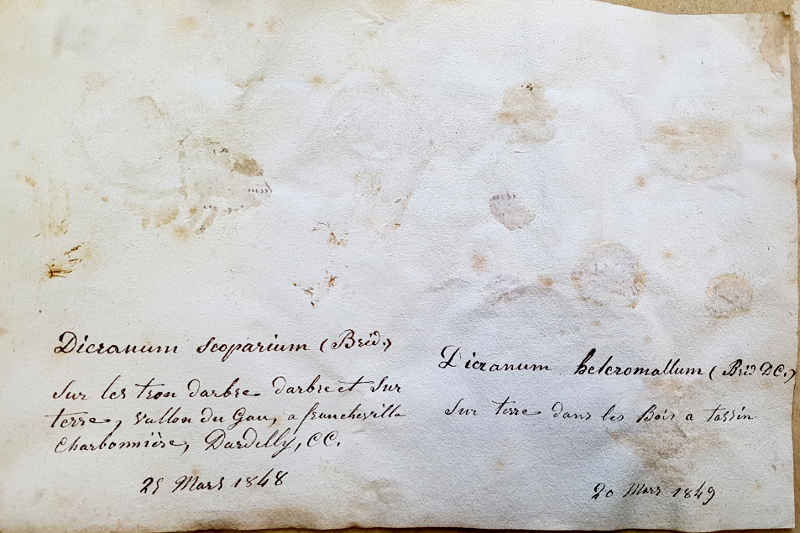 Dicranum scoparium (Brid.)
sur les tron darbre darbre et sur
terre, vallon du Gau, a francheville
Charbonnière, Dardilly, CC.
25 Mars 1848
Dicranum heteromallum (Brid DC.)
sur terre dans les Bois a tassin
20 Mars 1849